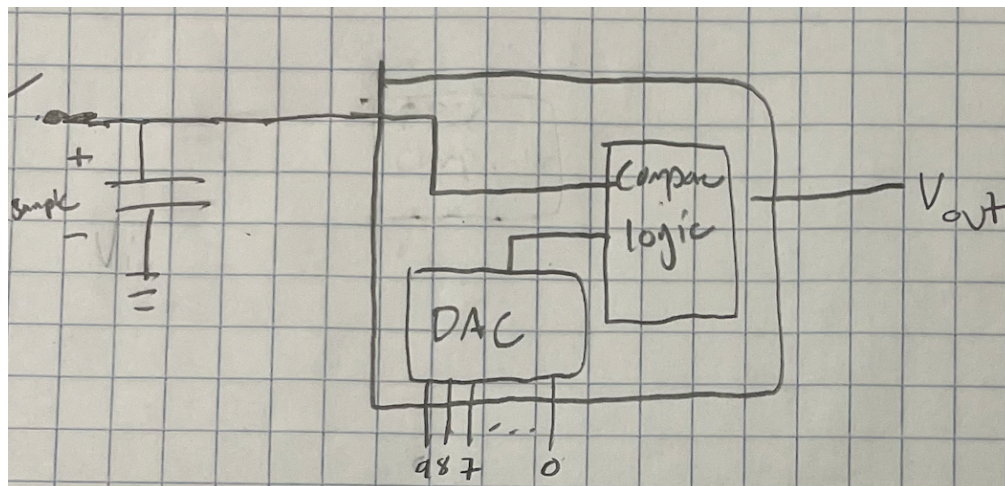 +
sample
-
Compar
logic
Vout
DAC
9 8 7 ... 0